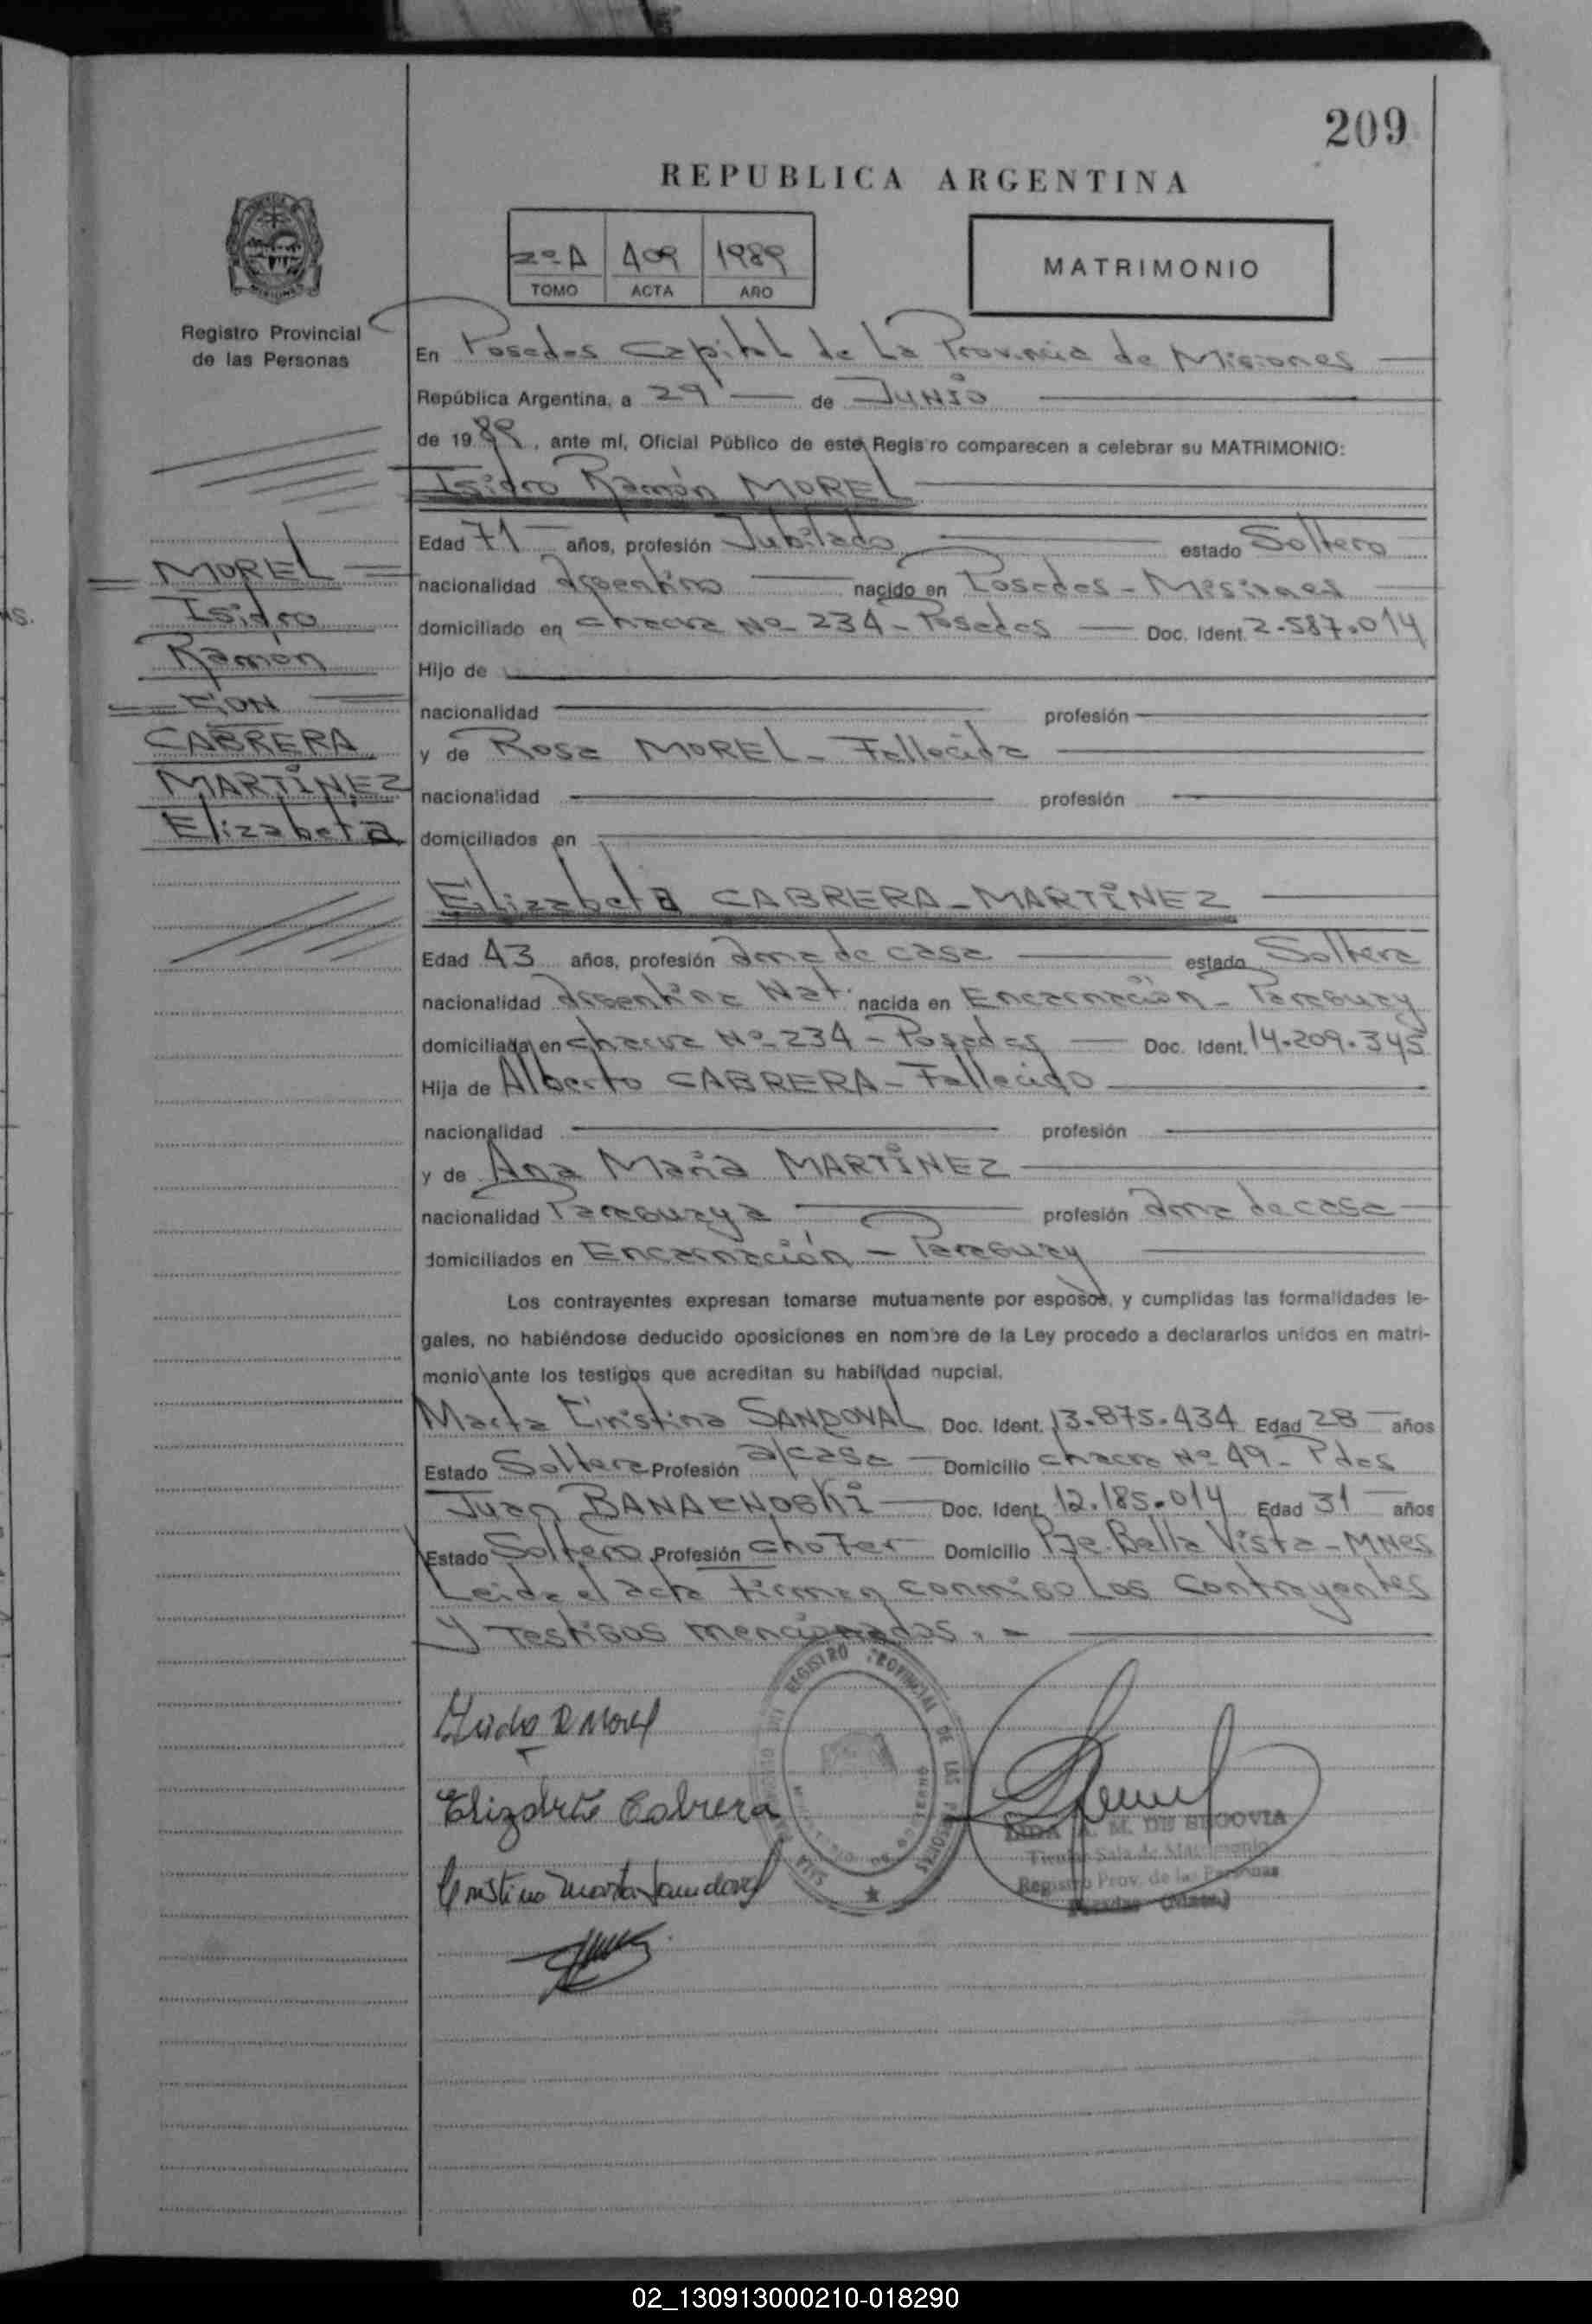 209
REPUBLICA ARGENTINA
2º A 409 1989
TOMO ACTA AÑO
MATRIMONIO
Registro Provincial
de las Personas
En Posadas Capital de La Provincia de Misiones
República Argentina, a 29 de Junio
de 1989, ante mí, Oficial Público de este Registro comparecen a celebrar su MATRIMONIO:
Isidro Ramón MOREL
Edad 71 años, profesión Jubilado estado Soltero
nacionalidad Argentino nacido en Posadas - Misiones
domiciliado en chacra Nº 234 - Posadas Doc. Ident. 2.587.014
Hijo de
nacionalidad profesión
y de Rosa MOREL - Fallecida
nacionalidad profesión
domiciliados en
MOREL
Isidro
Ramón
CON
CABRERA
MARTÍNEZ
Elizabeta
Elizabeta CABRERA - MARTÍNEZ
Edad 43 años, profesión ama de casa estado Soltera
nacionalidad Argentina Nat. nacida en Encarnación - Paraguay
domiciliada en chacra Nº 234 - Posadas Doc. Ident. 14.209.345
Hija de Alberto CABRERA - Fallecido
nacionalidad profesión
y de Ana María MARTÍNEZ
nacionalidad Paraguaya profesión ama de casa
domiciliados en Encarnación - Paraguay
Los contrayentes expresan tomarse mutuamente por esposos, y cumplidas las formalidades le-
gales, no habiéndose deducido oposiciones en nombre de la Ley procedo a declararlos unidos en matri-
monio ante los testigos que acreditan su habilidad nupcial.
Marta Cristina SANDOVAL Doc. Ident. 13.875.434 Edad 28 años
Estado Soltera Profesión a/casa Domicilio chacra Nº 49 - Pdas
Juan Doc. Ident. 12.185.014 Edad 31 años
Estado Soltero Profesión chofer Domicilio Pje. Bella Vista - Mnes
Leida el acta firman conmigo los contrayentes
y testigos mencionados. -
Isidro R Morel
Elizabeta Cabrera
Cristina Marta Sandoval
REGISTRO PROVINCIAL DE LAS PERSONAS
A. M. DE SEGOVIA
Titular Sala de Matrimonio
Registro Prov. de las Personas
Posadas (Mnes.)
02_130913000210-018290